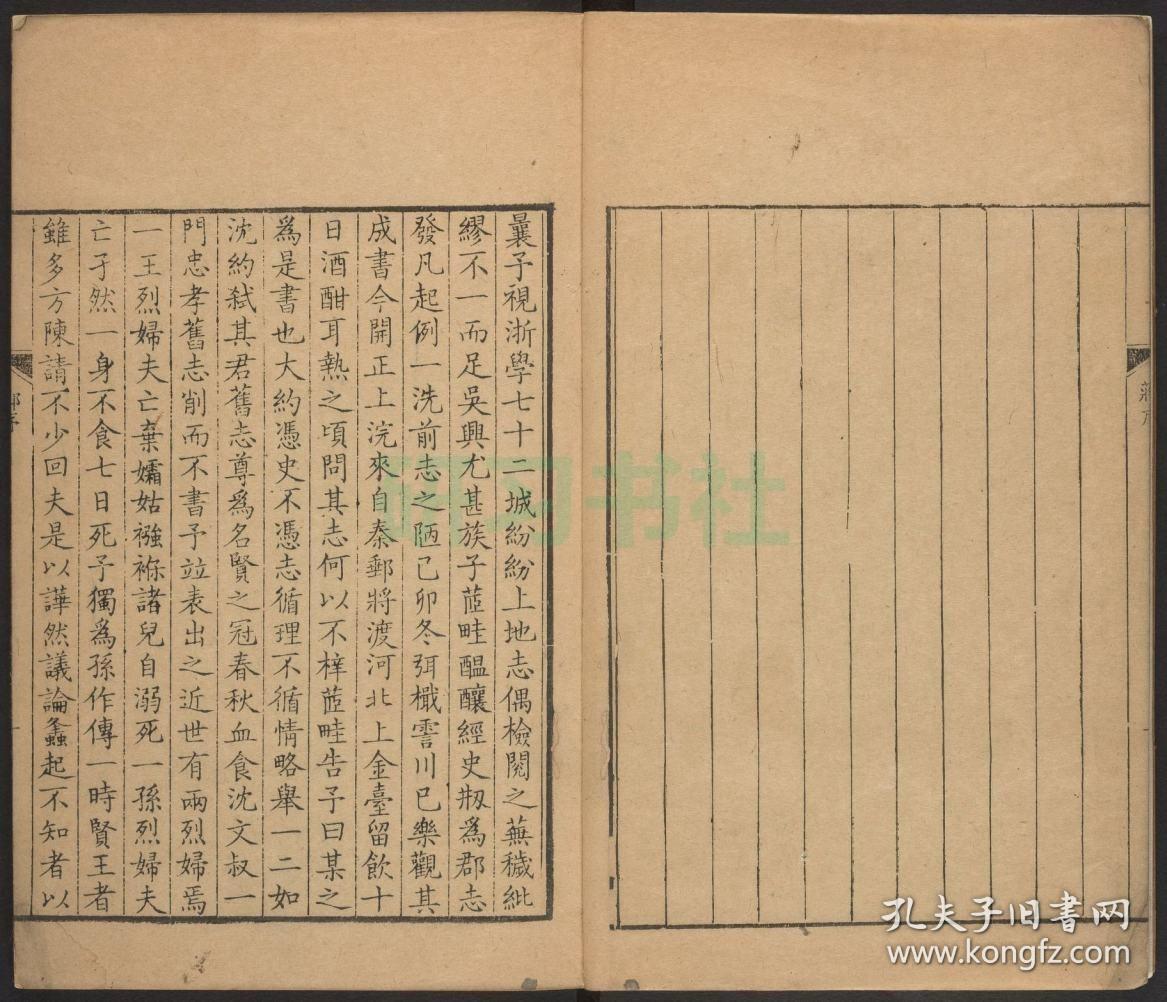 曩予視浙學七十二城紛紛上地志偶檢閱之蕪穢紕
繆不一而足吳興尤甚族子茝畦醞釀經史刱爲郡志
發凡起例一洗前志之陋己卯冬弭檝霅川已樂觀其
成書今開正上浣來自秦郵將渡河北上金臺留飲十
日酒酣耳熱之頃問其志何以不梓茝畦告予曰某之
爲是書也大約憑史不憑志循理不循情略舉一二如
沈約弒其君舊志尊爲名賢之冠春秋血食沈文叔一
門忠孝舊志削而不書予竝表出之近世有兩烈婦焉
一王烈婦夫亡棄孀姑襁褓諸兒自溺死一孫烈婦夫
亡孑然一身不食七日死予獨爲孫作傳一時賢王者
雖多方陳請不少回夫是以譁然議論螽起不知者以
序
一
研习书社
孔夫子旧书网
www.kongfz.com